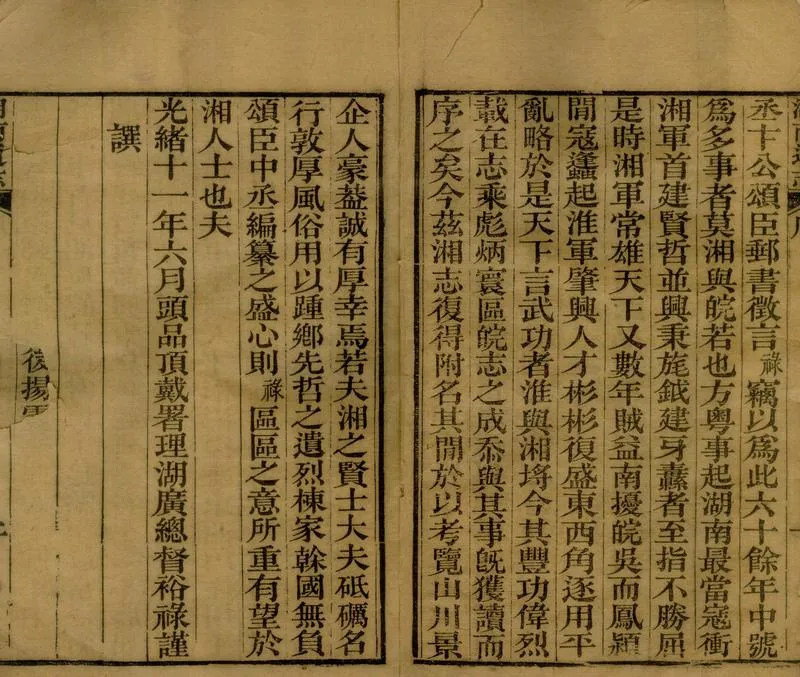 丞卞公頌臣郵書徵言祿竊以爲此六十餘年中號
爲多事者莫湘與皖若也方粵事起湖南最當寇衝
湘軍首建賢哲並興秉旄鉞建牙纛者至指不勝屈
是時湘軍常雄天下又數年賊益南擾皖吳而鳳潁
閒寇蠭起淮軍肇興人才彬彬復盛東西角逐用平
亂略於是天下言武功者淮與湘埒今其豐功偉烈
載在志乘彪炳寰區皖志之成忝與其事旣獲讀而
序之矣今茲湘志復得附名其閒於以考覽山川景
企人豪蓋誠有厚幸焉若夫湘之賢士大夫砥礪名
行敦厚風俗用以踵鄉先哲之遺烈棟家榦國無負
頌臣中丞編纂之盛心則祿區區之意所重有望於
湘人士也夫
光緒十一年六月頭品頂戴署理湖廣總督裕祿謹
譔